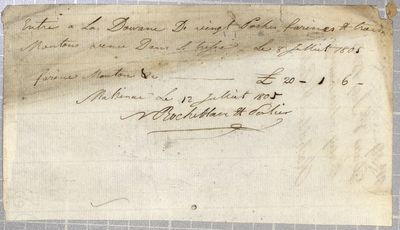 Entré a La Douane De vingt Poches farines &
Moutons venue Dans le Le 8 Juillet 1805
farine Mouton &c £ 20 - 1 . 6 -
Makinac Le 12 Juillet 1805
Rocheblave & Porlier